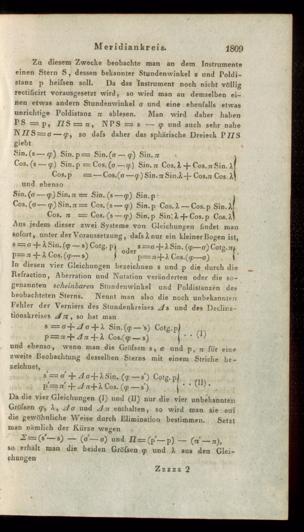 Meridiankreis. 1809
Zu diesem Zwecke beobachte man an dem Instrumente
einen Stern S, dessen bekannter Stundenwinkel s und Poldi-
stanz p heißen soll. Da das Instrument noch nicht völlig
rectificirt vorausgesetzt wird, so wird man an demselben ei-
nen etwas andern Stundenwinkel σ und eine ebenfalls etwas
unrichtige Poldistanz π ablesen. Man wird daher haben
PS = p, ΠS = π, NPS = s − φ und auch sehr nahe
NΠS = σ − φ, so daß daher das sphärische Dreieck PΠS
giebt
Sin.(s − φ) Sin. p = Sin.(σ − φ) Sin. π
Cos.(s − φ) Sin. p = Cos.(σ − φ) Sin. π Cos. λ + Cos. π Sin. λ
Cos. p = − Cos.(σ − φ) Sin. π Sin. λ + Cos. π Cos. λ
und ebenso
Sin.(σ − φ) Sin. π = Sin. (s − φ) Sin. p
Cos.(σ − φ) Sin. π = Cos. (s − φ) Sin. p Cos. λ − Cos. p Sin. λ
Cos. π = Cos. (s − φ) Sin. p Sin. λ + Cos. p Cos. λ
Aus jedem dieser zwei Systeme von Gleichungen findet man
sofort, unter der Voraussetzung, daß λ nur ein kleiner Bogen ist,
s = σ + λ Sin. (φ − s) Cotg. p oder s = σ + λ Sin. (φ − σ) Cotg. π
p = π + λ Cos. (φ − s) p = π + λ Cos. (φ − σ)
In diesen vier Gleichungen bezeichnen s und p die durch die
Refraction, Aberration und Nutation veränderten oder die so-
genannten scheinbaren Stundenwinkel und Poldistanzen des
beobachteten Sterns. Nennt man also die noch unbekannten
Fehler der Verniers des Stundenkreises Δs und des Declina-
tionskreises Δπ, so hat man
s = σ + Δσ + λ Sin. (φ − s) Cotg. p
p = π + Δπ + λ Cos. (φ − s) . . (I)
und ebenso, wenn man die Größen s, σ und p, π für eine
zweite Beobachtung desselben Sterns mit einem Striche be-
zeichnet,
s' = σ' + Δσ + λ Sin. (φ − s') Cotg. p
p' = π' + Δπ + λ Cos. (φ − s') . . (II).
Da die vier Gleichungen (I) und (II) nur die vier unbekannten
Größen φ, λ, Δσ und Δπ enthalten, so wird man sie auf
die gewöhnliche Weise durch Elimination bestimmen. Setzt
man nämlich der Kürze wegen
Σ = (s' − s) − (σ' − σ) und Π = (p' − p) − (π' − π),
so erhält man die beiden Größen φ und λ aus den Glei-
chungen
Zzzzz 2